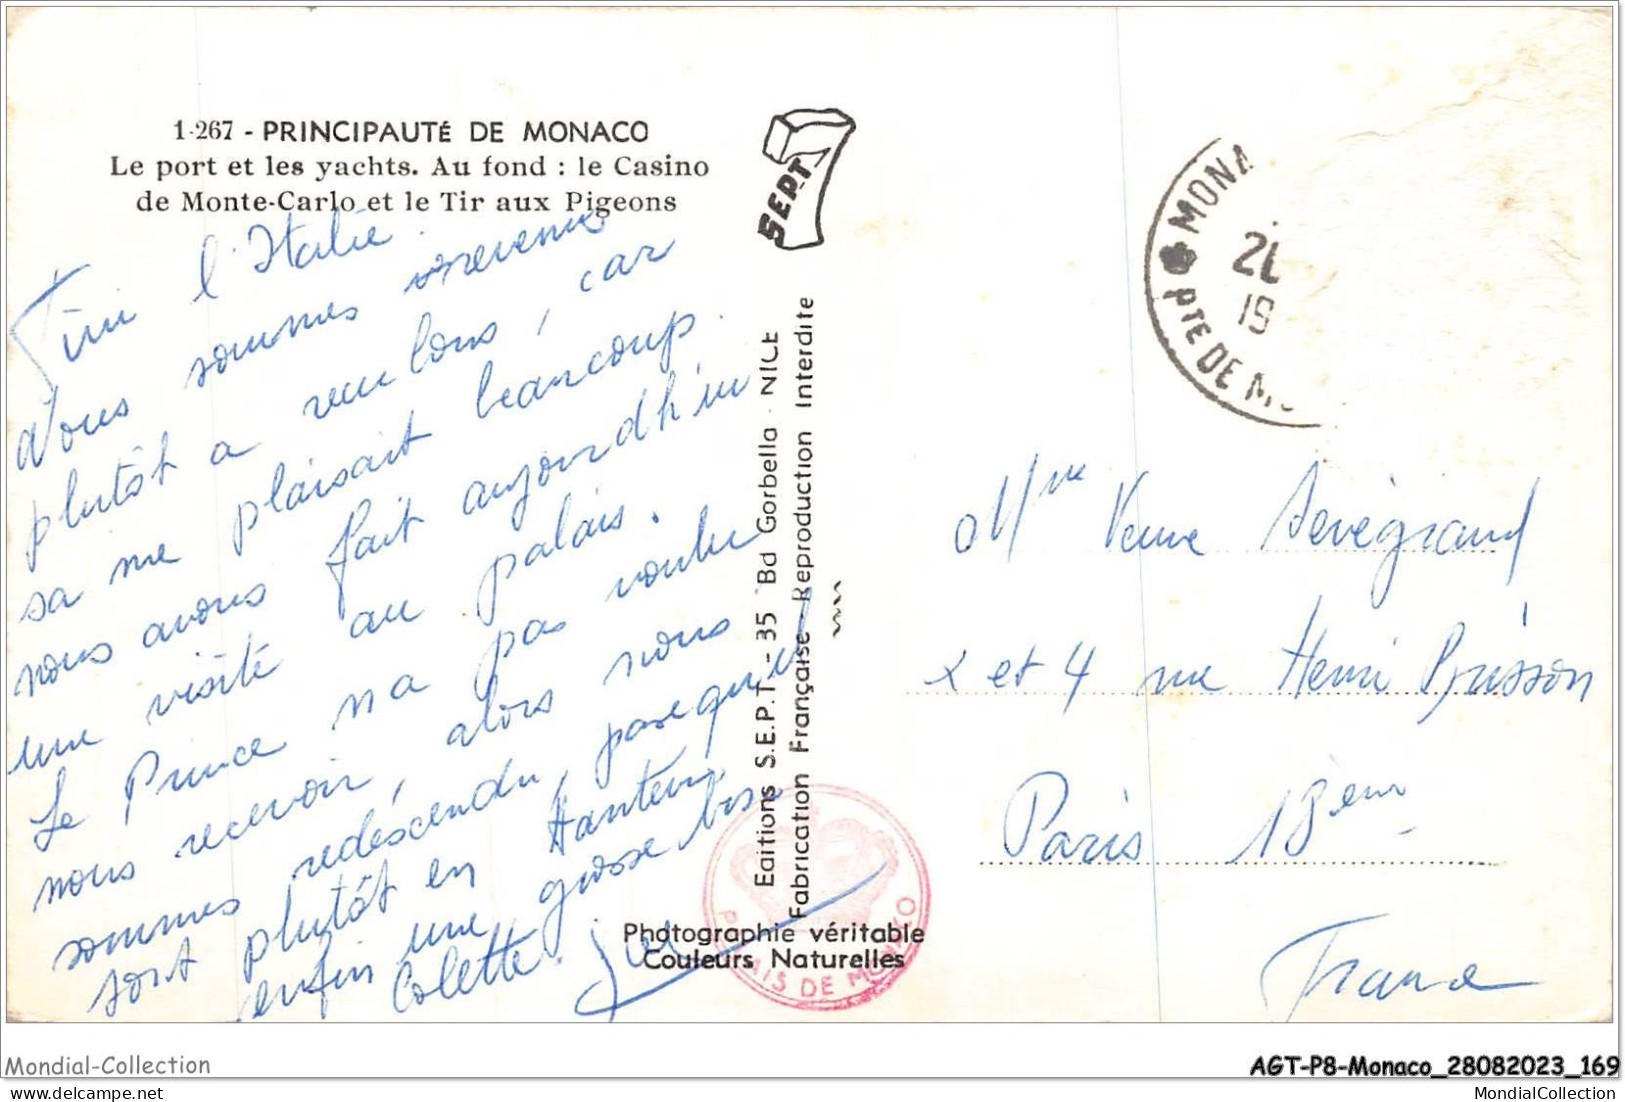 1-267 - PRINCIPAUTÉ DE MONACO
Le port et les yachts. Au fond : le Casino
de Monte-Carlo et le Tir aux Pigeons
Fini l'Italie.
Nous sommes revenus
plutôt a reculons, car
sa me plaisait beaucoup.
nous avons fait aujourd'hui
une visite au palais.
Le Prince na pas voulu
nous recevoir, alors nous
sommes redescendu, parsequ'il
sont plutôt en
enfin une grosse bise
Colette
SEPT
7
Editions S.E.P.T - 35 Bd Gorbella - NICE
Fabrication Française - Reproduction Interdite
Photographie véritable
Couleurs Naturelles
PALAIS DE MONACO
MONA
2
19
PTE DE MO
Mme Veuve Sevégrand
2 et 4 rue Henri Brisson
Paris 18ème
France
Mondial-Collection
AGT-P8-Monaco_28082023_169
MondialCollection